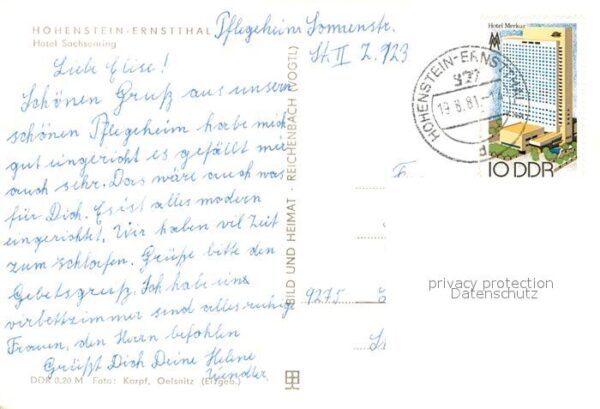 HOHENSTEIN-ERNSTTHAL
Hotel Sachsenring
Pflegeheim Sonnenstr.
St. II Z. 923
Liebe Elise!
Schönen Gruß aus unserm
schönen Pflegeheim habe mich
gut eingericht es gefällt mir
auch sehr. Das wäre auch was
für Dich. Es ist alles modern
eingerichtet. Wir haben vil Zeit
zum schlafen. Grüße bitte den
Gebetsgruß. Ich habe eins
vierbettzimmer sind alles ruhige
Frauen, den Herrn befohlen
Grüßt Dich Deine Helene
Wendler
DDR 0,20 M Foto: Karpf, Oelsnitz (Erzgeb.)
BILD UND HEIMAT · REICHENBACH (VOGTL)
Hotel Merkur
10 DDR
HOHENSTEIN-ERNSTTHAL
927
19.8.81
9275
privacy protection
Datenschutz